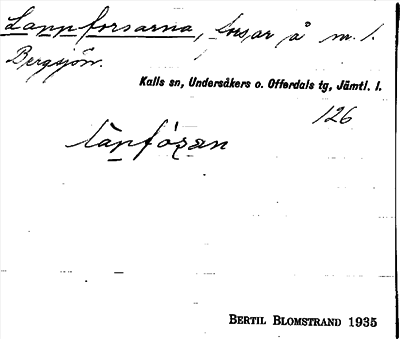 Lappforsarna, forsar å m. l.
Bergsjön.
Kalls sn, Undersåkers o. Offerdals tg, Jämtl. l.
126
làpfóʂan
BERTIL BLOMSTRAND 1935